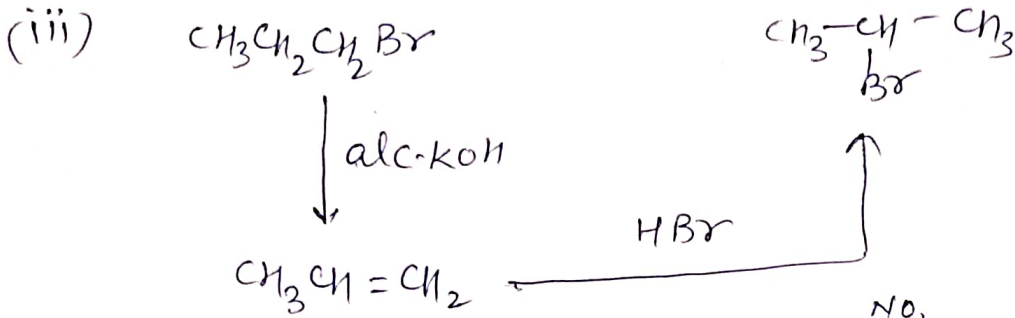 (iii) CH3CH2CH2Br CH3-CH-CH3
Br
alc.KOH
HBr
CH3CH=CH2
NO.